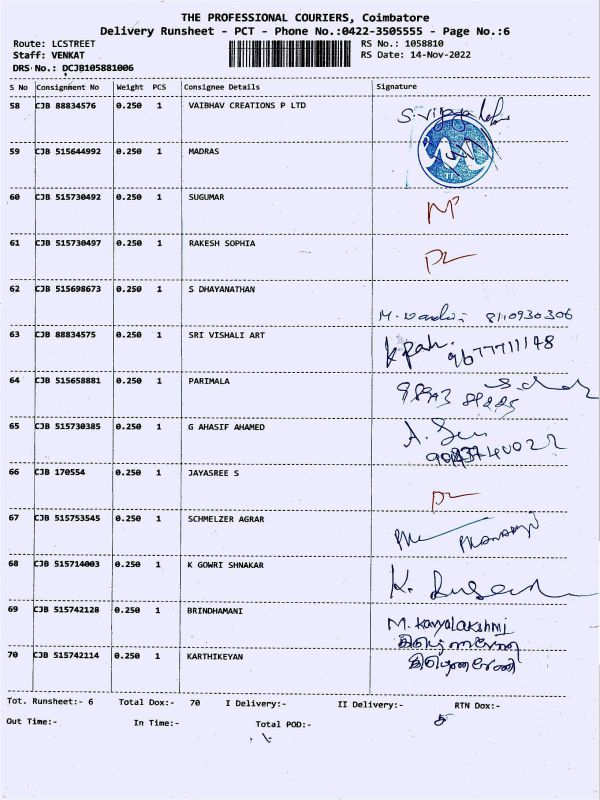 THE PROFESSIONAL COURIERS, Coimbatore
Delivery Runsheet - PCT - Phone No.:0422-3505555 - Page No.:6
Route: LCSTREET RS No.: 1058810
Staff: VENKAT RS Date: 14-Nov-2022
DRS No.: DCJB105881006
S No Consignment No Weight PCS Consignee Details Signature
58 CJB 88834576 0.250 1 VAIBHAV CREATIONS P LTD
59 CJB 515644992 0.250 1 MADRAS
60 CJB 515730492 0.250 1 SUGUMAR
61 CJB 515730497 0.250 1 RAKESH SOPHIA
62 CJB 515698673 0.250 1 S DHAYANATHAN
8110930306
63 CJB 88834575 0.250 1 SRI VISHALI ART
9677711148
64 CJB 515658881 0.250 1 PARIMALA
65 CJB 515730385 0.250 1 G AHASIF AHAMED
66 CJB 170554 0.250 1 JAYASREE S
67 CJB 515753545 0.250 1 SCHMELZER AGRAR
68 CJB 515714003 0.250 1 K GOWRI SHNAKAR
69 CJB 515742128 0.250 1 BRINDHAMANI
M. Kavyalakshmi
70 CJB 515742114 0.250 1 KARTHIKEYAN
Tot. Runsheet:- 6 Total Dox:- 70 I Delivery:- II Delivery:- RTN Dox:-
Out Time:- In Time:- Total POD:-